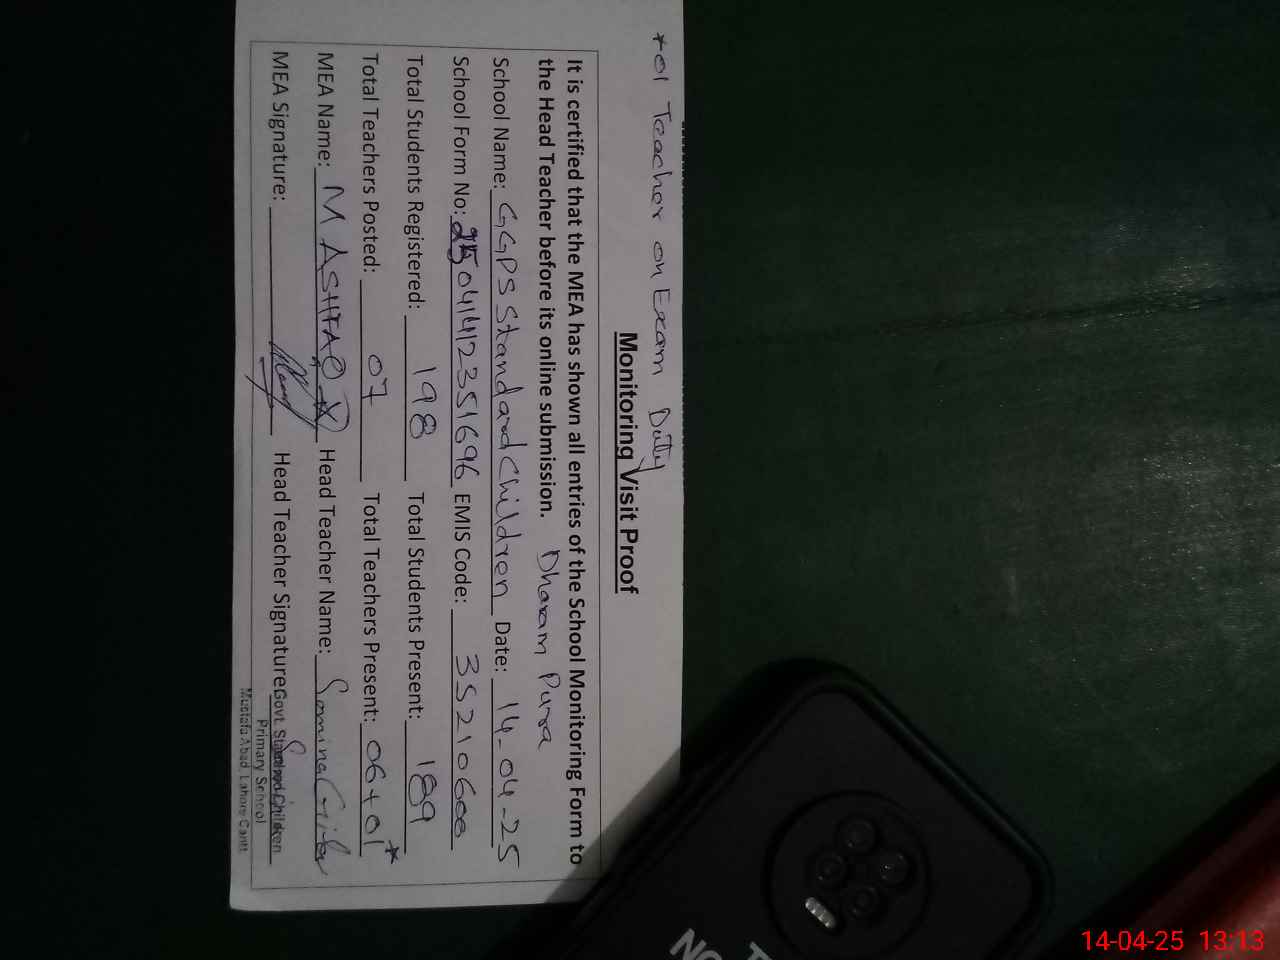 *01 Teacher on Exam Duty
Monitoring Visit Proof
It is certified that the MEA has shown all entries of the School Monitoring Form to
the Head Teacher before its online submission. Dharam Pura
School Name: GGPS Standard Children Date: 14-04-25
School Form No: 25041412351696 EMIS Code: 35210608
Total Students Registered: 198 Total Students Present: 189
Total Teachers Posted: 07 Total Teachers Present: 06+01*
MEA Name: M ASHFAQ Head Teacher Name: Samina
MEA Signature: Head Teacher Signature
Govt. Standard Children
Primary School
Mustafa Abad, Lahore Cantt
NO
14-04-25 13:13